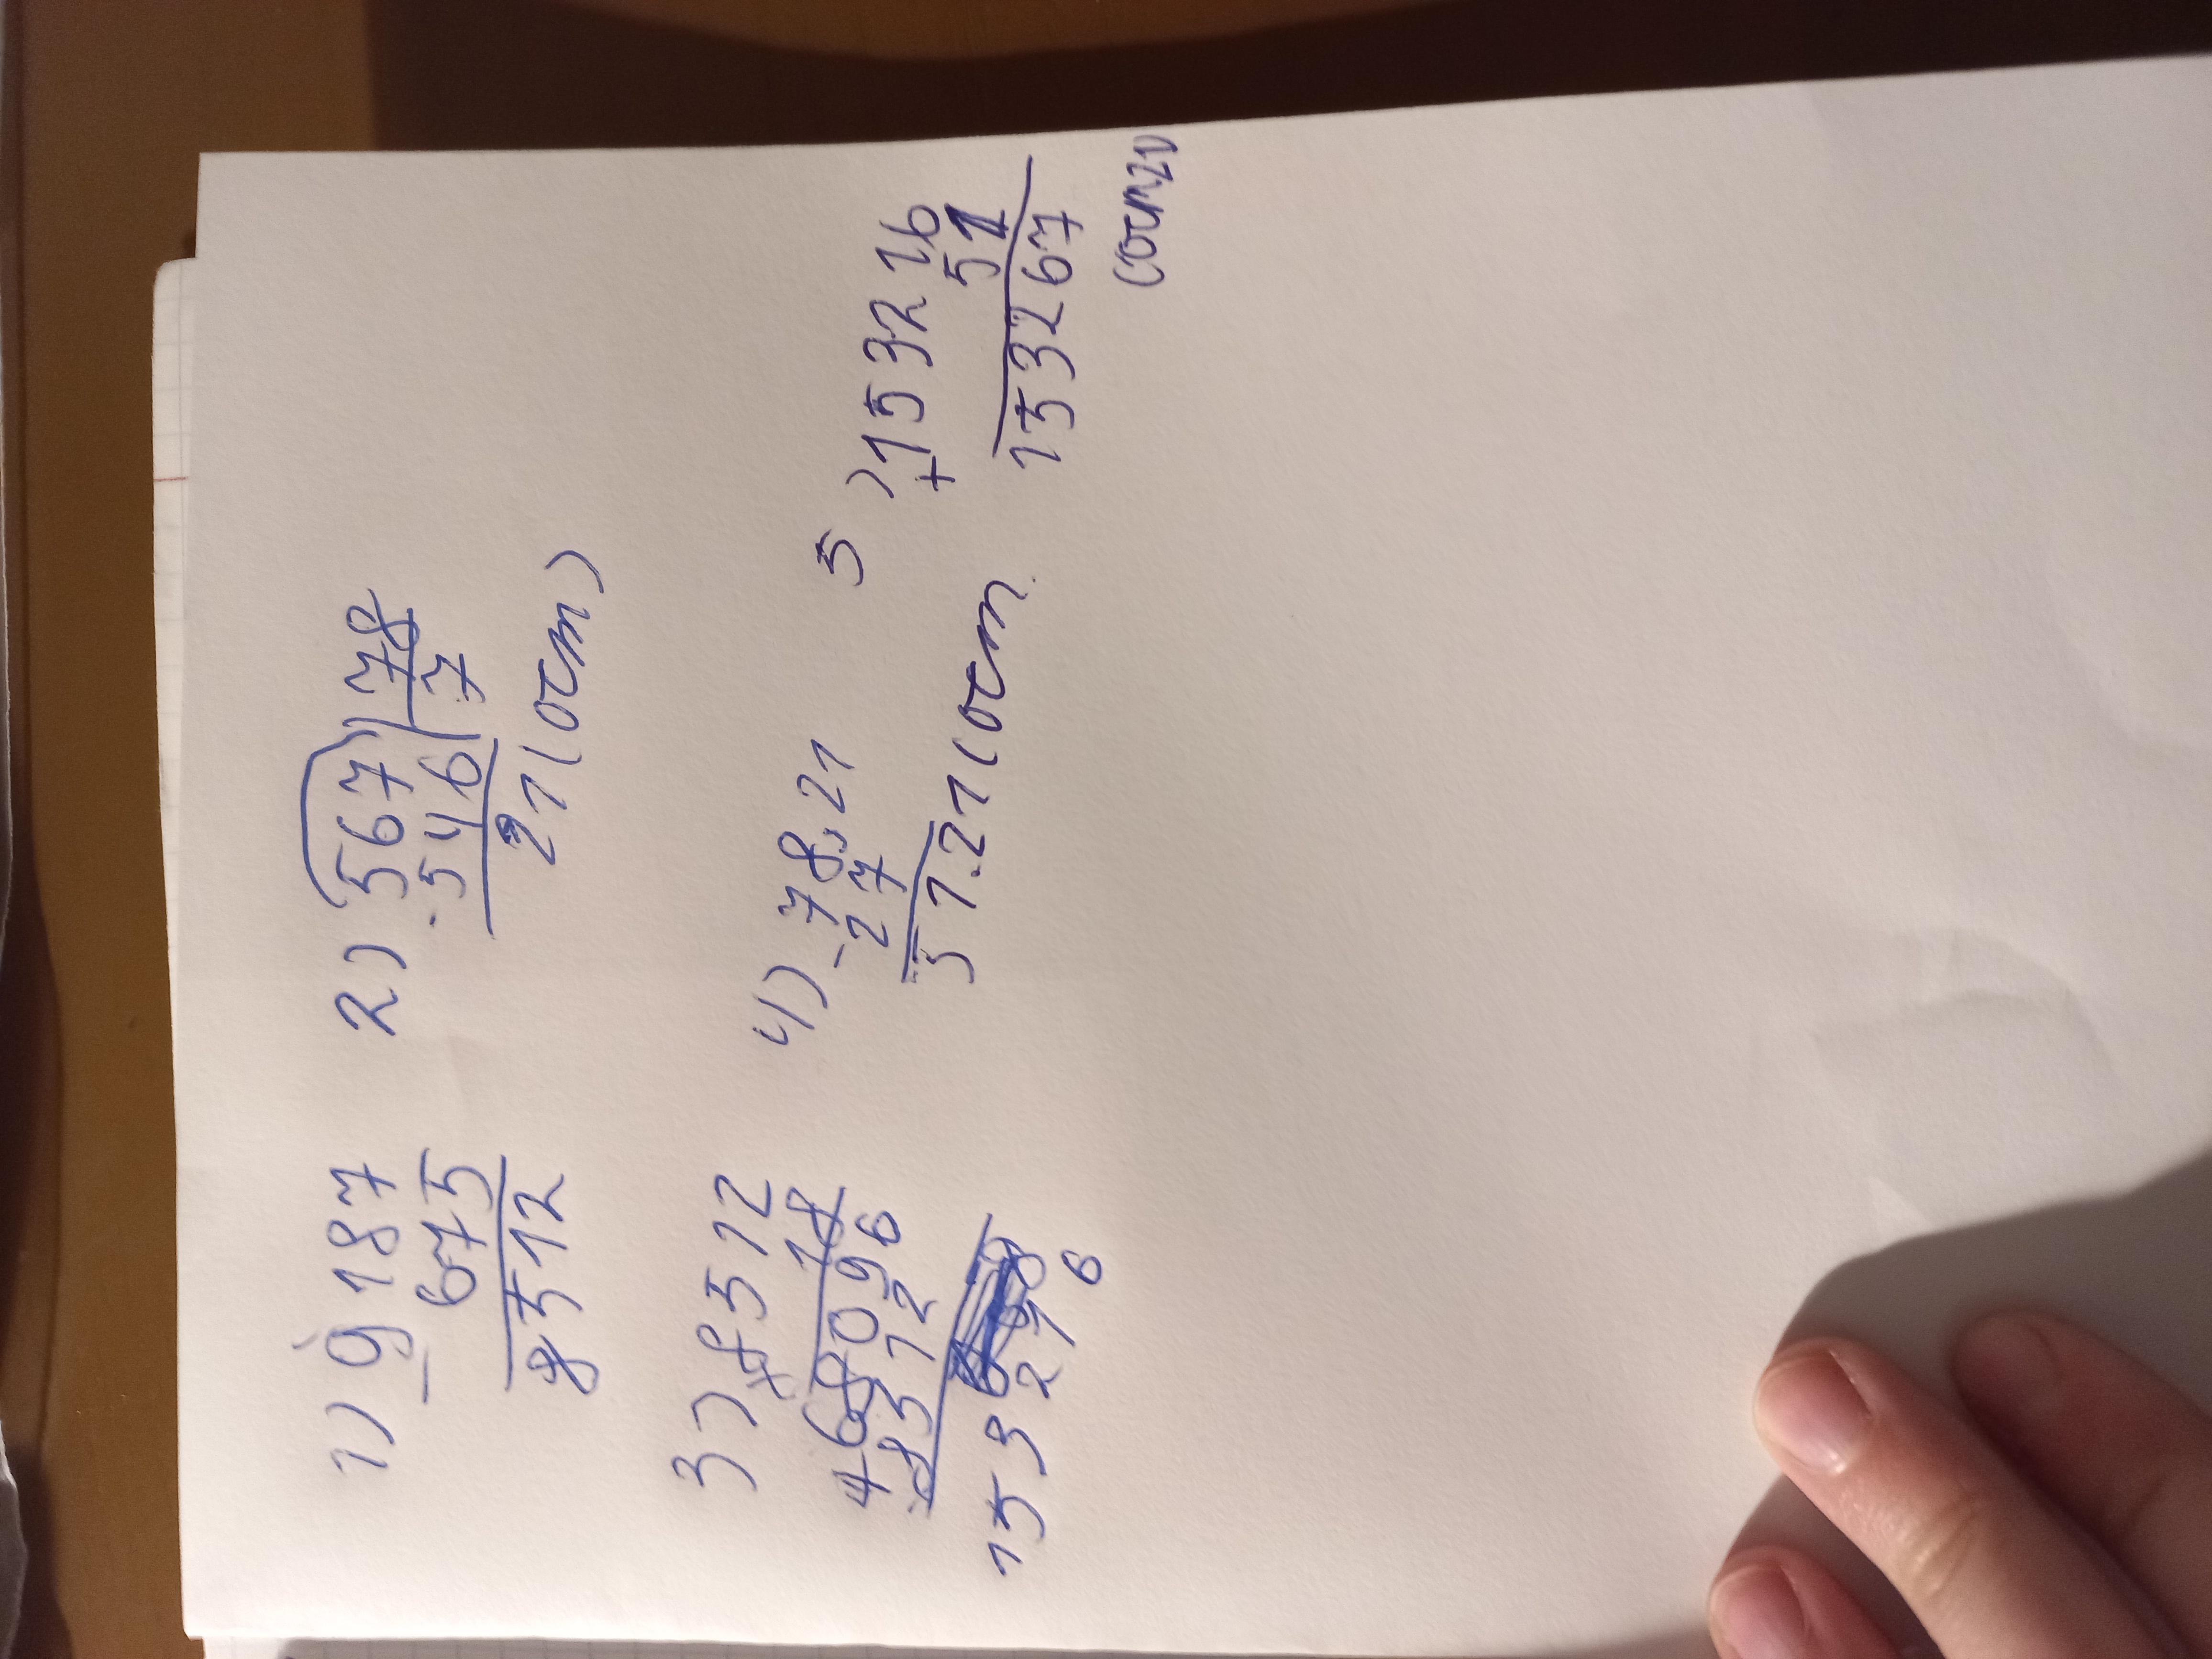 1) 9187
- 675
8512
2) 567 | 78
- 546 | 7
21 (ост)
3) 8512
× 18
68096
+ 8512
153216
4) 78,21
- 27
51.21 (ост
5) 153216
+ 51
153267
(ост 21)